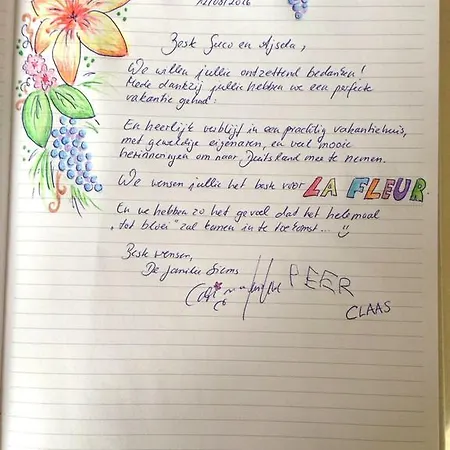 12/08/2016
Beste Suco en Ajseda,
We willen jullie ontzettend bedanken!
Mede dankzij jullie hebben we een perfecte
vakantie gehad.
En heerlijk verblijf in een prachtig vakantiehuis,
met geweldige eigenaren, en veel mooie
herinneringen om naar Duitsland mee te nemen.
We wensen jullie het beste voor LA FLEUR.
En we hebben zo het gevoel dat het helemaal
"tot bloei" zal komen in te toekomst...
Beste wensen,
De familie Siems
PEER
CLAAS